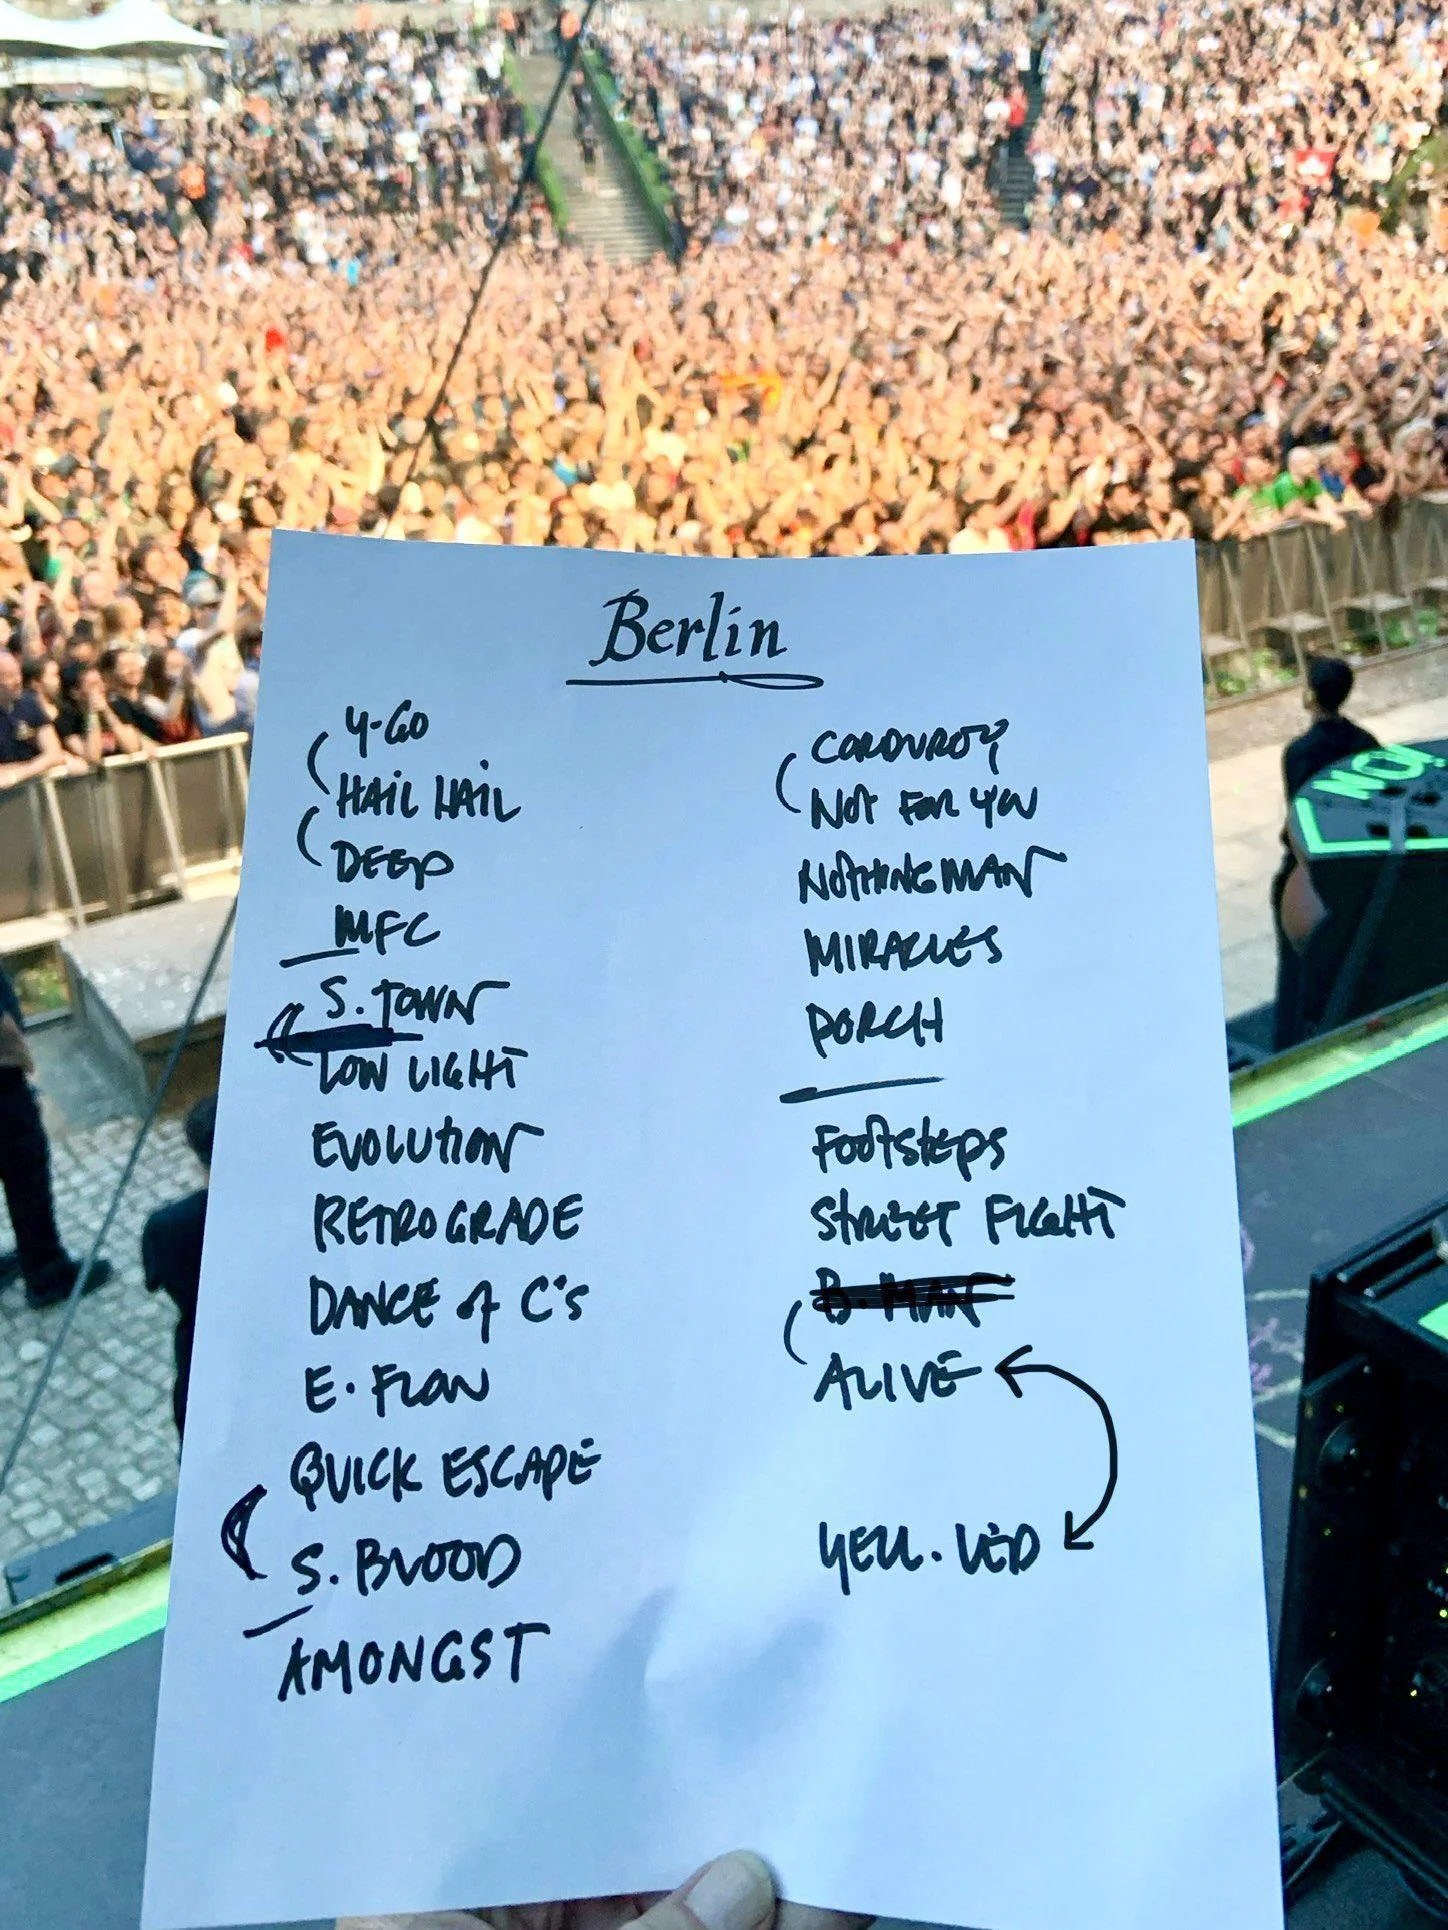 Berlin
Y-GO
HAIL HAIL
DEEP
MFC
S. TOWN
LOW LIGHT
EVOLUTION
RETROGRADE
DANCE of C's
E. FLOW
QUICK ESCAPE
S. BLOOD
AMONGST
CORDUROY
NOT FOR YOU
NOTHINGMAN
MIRACLES
PORCH
FOOTSTEPS
STREET FIGHT
B. MAN
ALIVE
YELL. LED